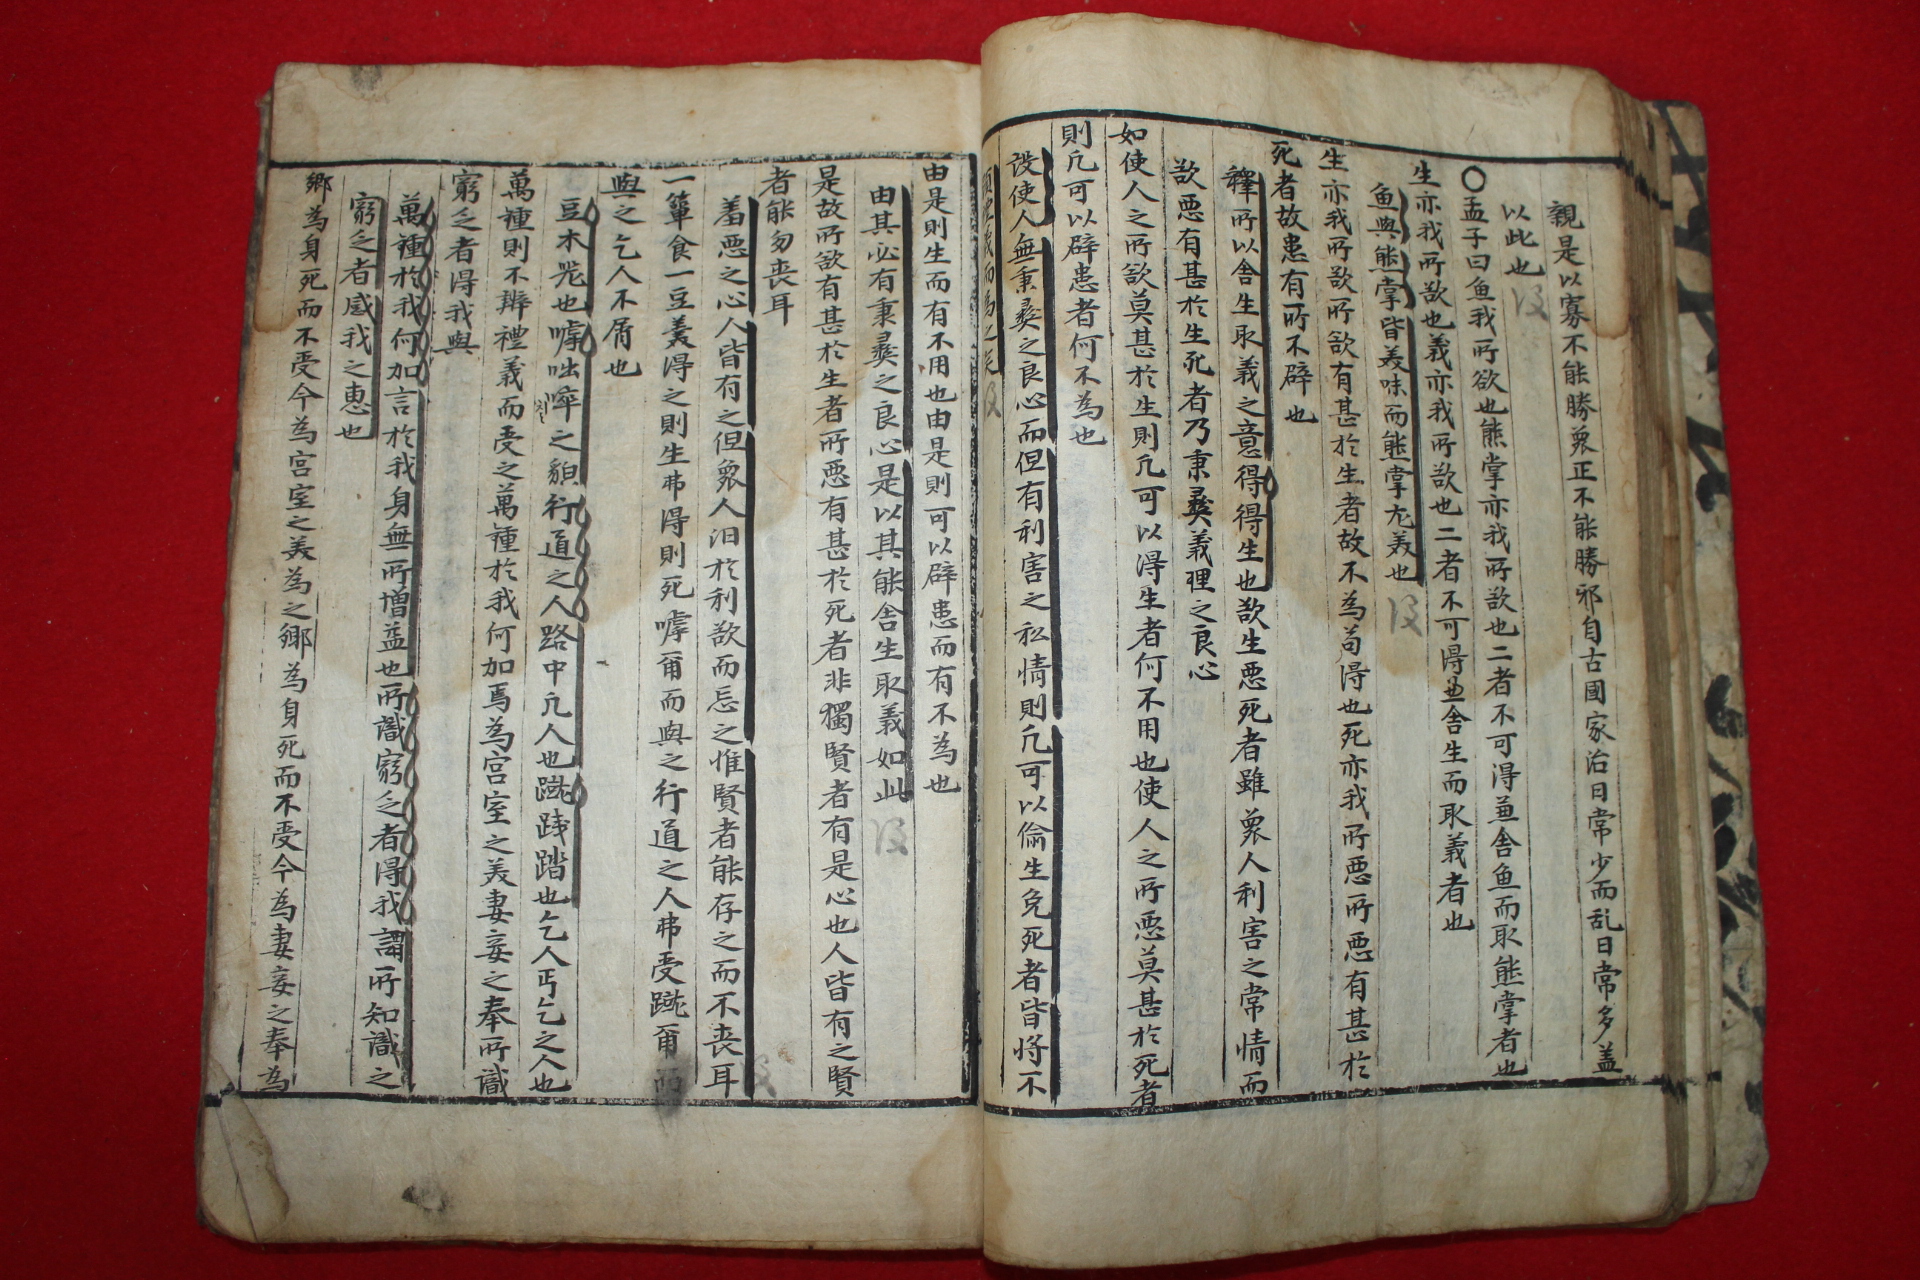 親是以寡不能勝衆正不能勝邪自古國家治日常少而乱日常多盖
以此也
〇孟子曰魚我所欲也熊掌亦我所欲也二者不可得兼舍魚而取熊掌者也
生亦我所欲也義亦我所欲也二者不可得兼舍生而取義者也
魚與熊掌皆美味而熊掌尤美也
生亦我所欲所欲有甚於生者故不為苟得也死亦我所惡所惡有甚於
死者故患有所不辟也
釋所以舍生取義之意得得生也欲生惡死者雖衆人利害之常情而
欲惡有甚於生死者乃秉彛義理之良心
如使人之所欲莫甚於生則凡可以得生者何不用也使人之所惡莫甚於死者
則凡可以辟患者何不為也
設使人無秉彛之良心而但有利害之私情則凡可以偷生免死者皆將不
由是則生而有不用也由是則可以辟患而有不為也
由其必有秉彛之良心是以其能舍生取義如此
是故所欲有甚於生者所惡有甚於死者非獨賢者有是心也人皆有之賢
者能勿喪耳
羞惡之心人皆有之但衆人汨於利欲而忘之惟賢者能存之而不喪耳
一簞食一豆羹得之則生弗得則死嘑爾而與之行道之人弗受蹴爾而
與之乞人不屑也
豆木器也嘑咄啐之貌行道之人路中凡人也蹴踐踏也乞人丐乞之人也
萬鍾則不辨禮義而受之萬鍾於我何加焉為宮室之美妻妾之奉所識
窮乏者得我與
萬鍾於我何加言於我身無所增益也所識窮乏者得我謂所知識之
窮乏者感我之惠也
鄉為身死而不受今為宮室之美為之鄉為身死而不受今為妻妾之奉為